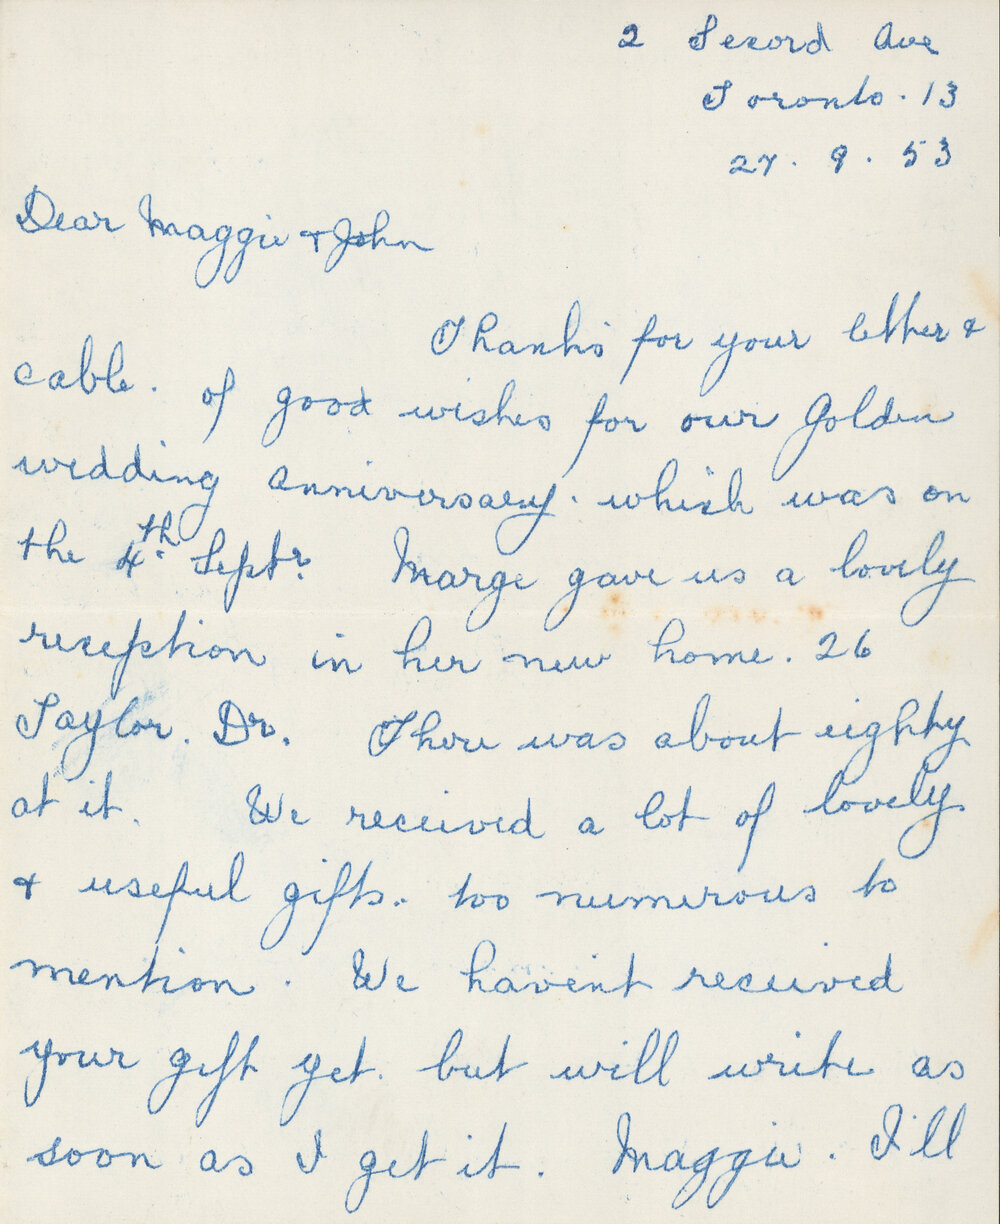 2 Secord Ave
Toronto. 13
27. 9. 53
Dear Maggie & John
Thanks for your letter &
cable. of good wishes for our Golden
wedding anniversary. which was on
the 4th. Septr. Marge gave us a lovely
reception in her new home. 26
Taylor. Dr. There was about eighty
at it. We received a lot of lovely
& useful gifts. too numerous to
mention. We havent received
your gift yet. but will write as
soon as I get it. Maggie. I'll